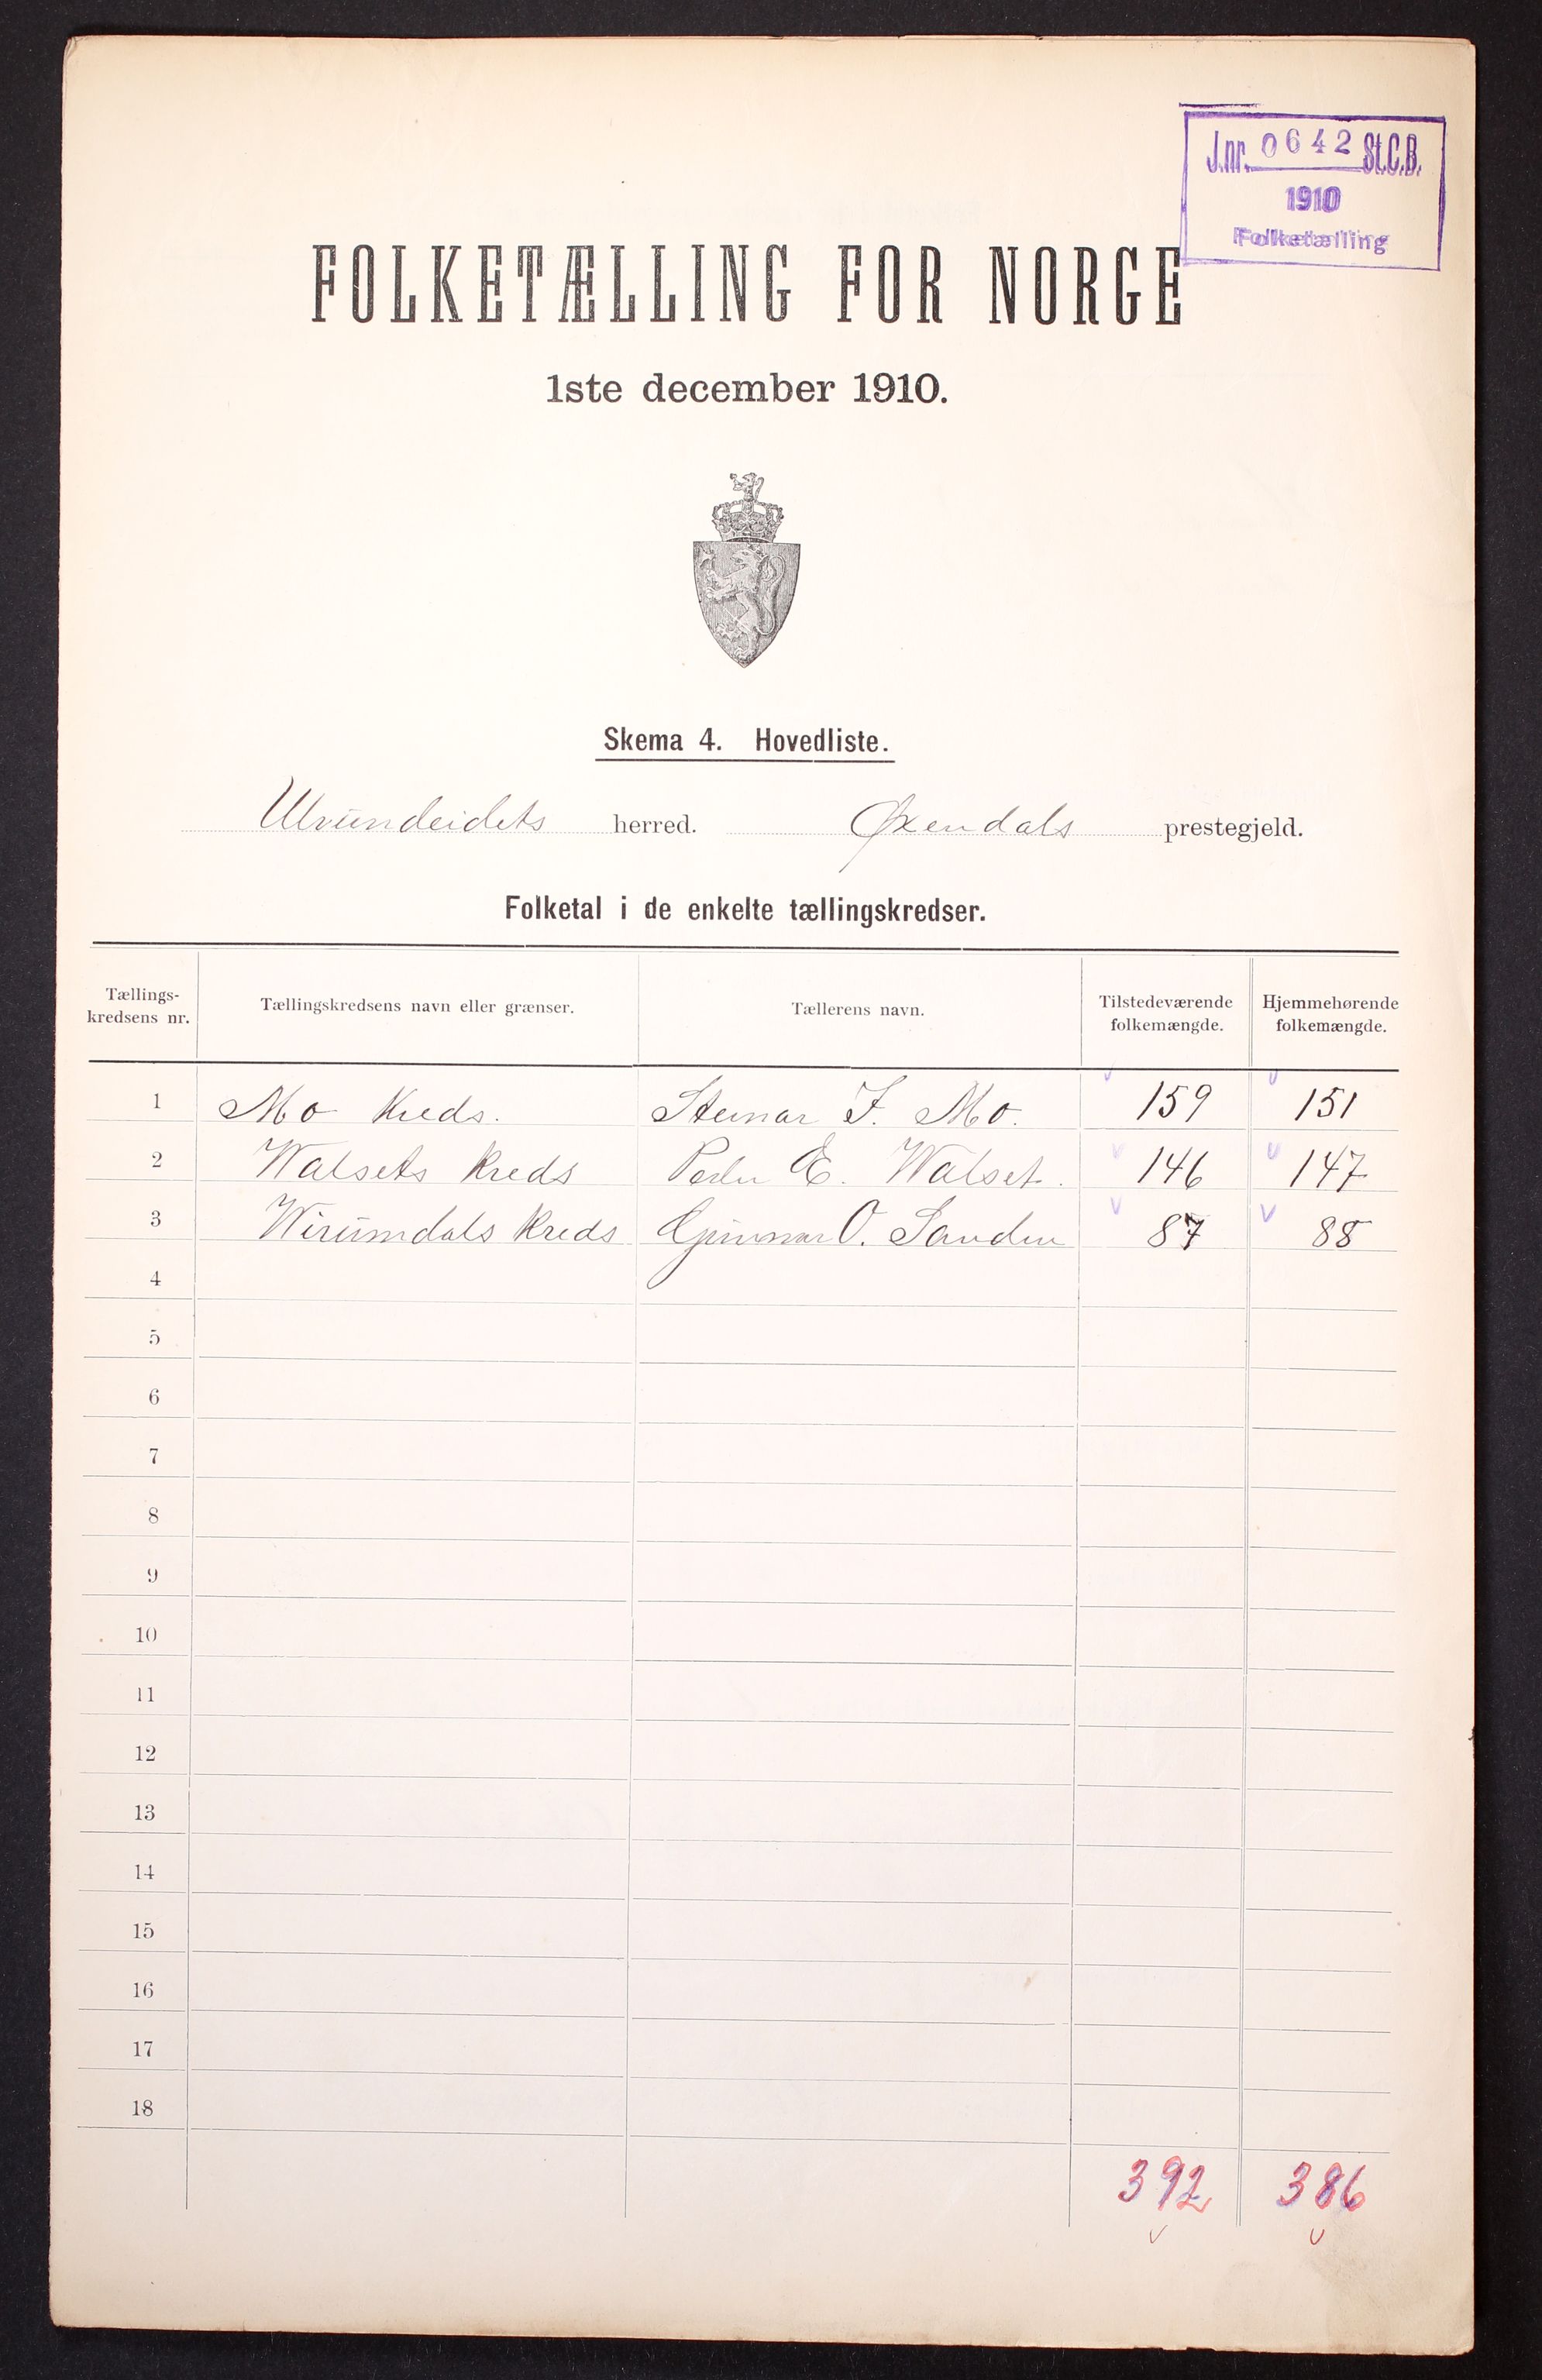 J.nr. 0642 St.C.B.
1910
Folketælling
FOLKETÆLLING FOR NORGE
1ste december 1910.
Skema 4. Hovedliste.
Ulvundeidets herred. Øxendals prestegjeld.
Folketal i de enkelte tællingskredser.
Tællings-kredsens nr. Tællingskredsens navn eller grænser. Tællerens navn. Tilstedeværende folkemængde. Hjemmehørende folkemængde.
1 Mo Kreds. Steinar F. Mo. 159 151
2 Walsets Kreds Peder E. Walset. 146 147
3 Wirumdals Kreds Gunnar O. Sanden 87 88
4
5
6
7
8
9
10
11
12
13
14
15
16
17
18
392 386